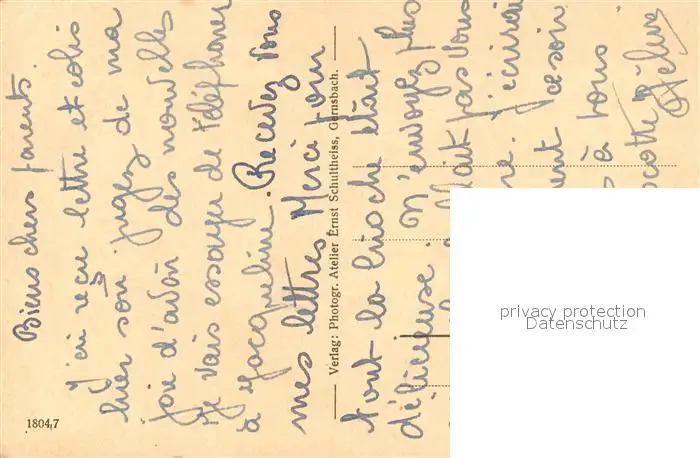 Biens chers parents.
J'ai reçu lettre et colis
hier soir jugez de ma
joie d'avoir des nouvelles
Je vais essayer de téléphoner
à Jacqueline. Recevez vous
mes lettres Merci pour
Verlag: Photogr. Atelier Ernst Schultheiss, Gernsbach.
tout la brioche était
délicieuse. N'envoyez plus
pas vous
écrirai
ce soir
à tous
1804,7
privacy protection
Datenschutz